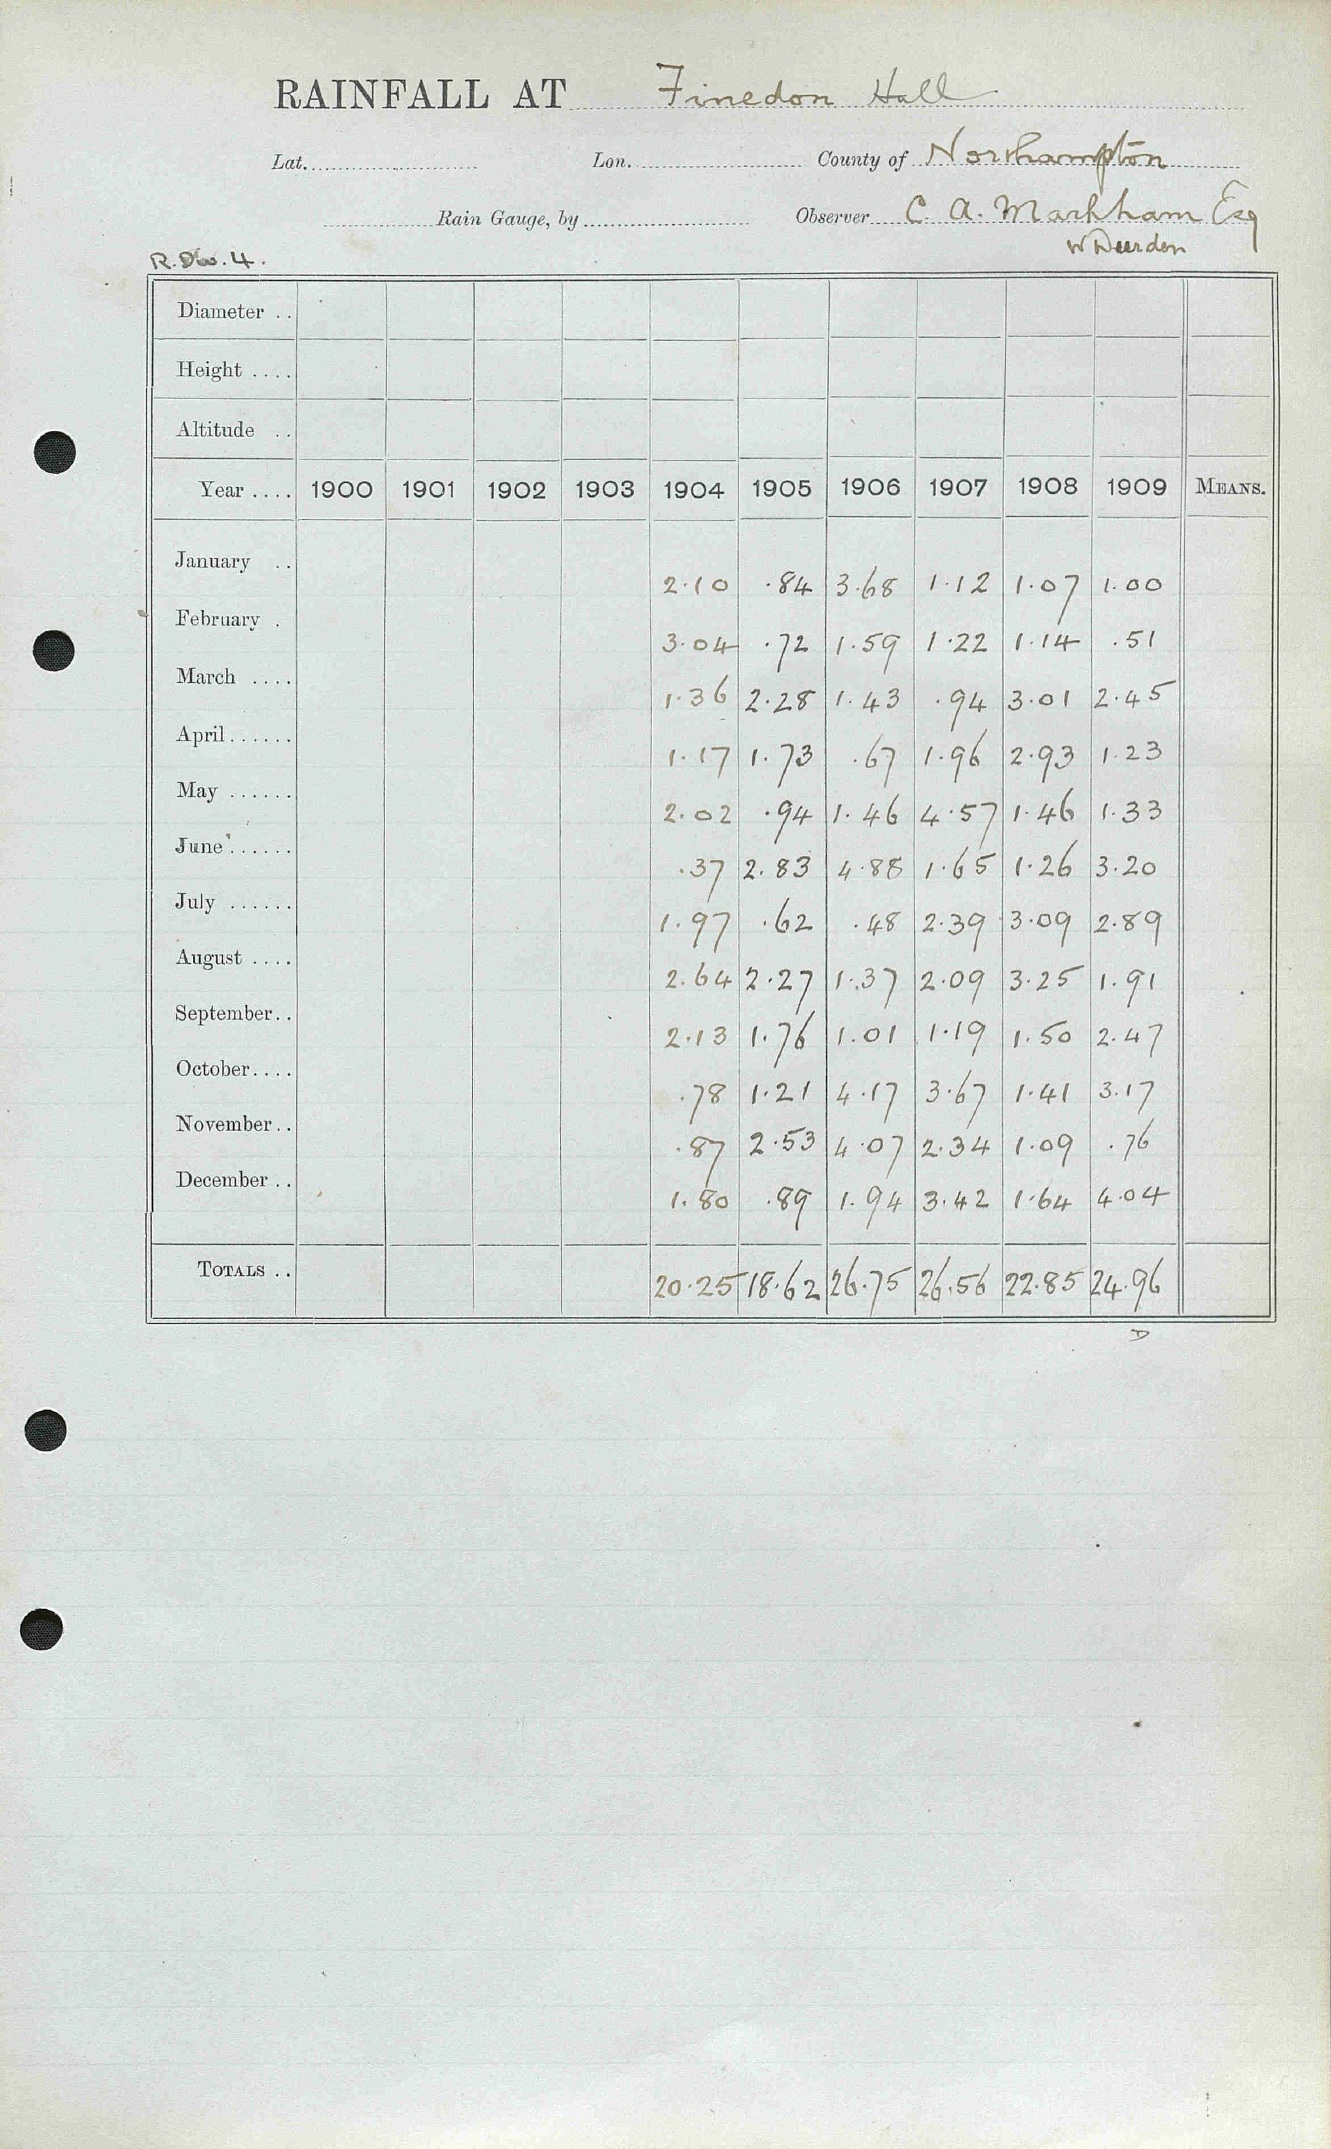 RAINFALL AT Finedon Hall
Lat. Lon. County of Northampton
Rain Gauge, by Observer C. A. Markham Esq
W Deerden
R. 4.
Diameter ..
Height ....
Altitude ..
Year .... 1900 1901 1902 1903 1904 1905 1906 1907 1908 1909 MEANS.
January .. 2.10 .84 3.68 1.12 1.07 1.00
February . 3.04 .72 1.59 1.22 1.14 .51
March .... 1.36 2.28 1.43 .94 3.01 2.45
April ...... 1.17 1.73 .67 1.96 2.93 1.23
May ...... 2.02 .94 1.46 4.57 1.46 1.33
June ...... .37 2.83 4.88 1.65 1.26 3.20
July ...... 1.97 .62 .48 2.39 3.09 2.89
August .... 2.64 2.27 1.37 2.09 3.25 1.91
September.. 2.13 1.76 1.01 1.19 1.50 2.47
October.... .78 1.21 4.17 3.67 1.41 3.17
November.. .87 2.53 4.07 2.34 1.09 .76
December .. 1.80 .89 1.94 3.42 1.64 4.04
TOTALS .. 20.25 18.62 26.75 26.56 22.85 24.96
D